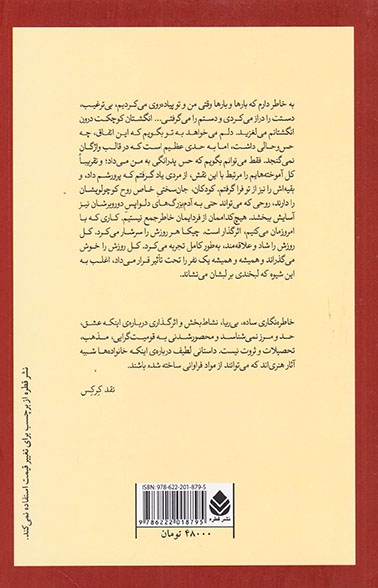 به خاطر دارم که بارها و بارها وقتی من و تو پیاده‌روی می‌کردیم، بی‌ترغیب،
دستت را دراز می‌کردی و دستم را می‌گرفتی... انگشتان کوچکت درون
انگشتانم می‌لغزید. دلم می‌خواهد به تو بگویم که این اتفاق، چه
حس‌وحالی داشت، اما به حدی عظیم است که در قالب واژگان
نمی‌گنجد. فقط می‌توانم بگویم که حس پدرانگی به من می‌داد؛ و تقریباً
کل آموخته‌هایم را مرتبط با این نقش، از مردی یاد گرفتم که پرورشم داد، و
بقیه‌اش را نیز از تو فرا گرفتم. کودکان، جان‌سختی خاص روح کوچولویشان
را دارند، روحی که می‌تواند حتی به آدم‌بزرگ‌های دلواپس دوروبرشان نیز
آسایش ببخشد. هیچ‌کداممان از فردایمان خاطرجمع نیستیم. کاری که با
امروزمان می‌کنیم، اثرگذار است. چیکا هر روزش را سرشار می‌کرد. کل
روزش را شاد و علاقه‌مند، به‌طور کامل تجربه می‌کرد. کل روزش را خوش
می‌گذراند و همیشه و همیشه یک نفر را تحت تأثیر قرار می‌داد، اغلب به
این شیوه که لبخندی بر لبشان می‌نشاند.
خاطره‌نگاری ساده، بی‌ریا، نشاط‌بخش و اثرگذاری درباره‌ی اینکه عشق،
حد و مرز نمی‌شناسد و محصورشدنی به قومیت‌گرایی، مذهب،
تحصیلات و ثروت نیست. داستانی لطیف درباره‌ی اینکه خانواده‌ها شبیه
آثار هنری‌اند که می‌توانند از مواد فراوانی ساخته شده باشند.
نقد کِرکِس
نشر قطره از برچسب برای تغییر قیمت استفاده نمی‌کند.
ISBN: 978-622-201-879-5
9786222018795
نشر قطره
۴۸۰۰۰ تومان